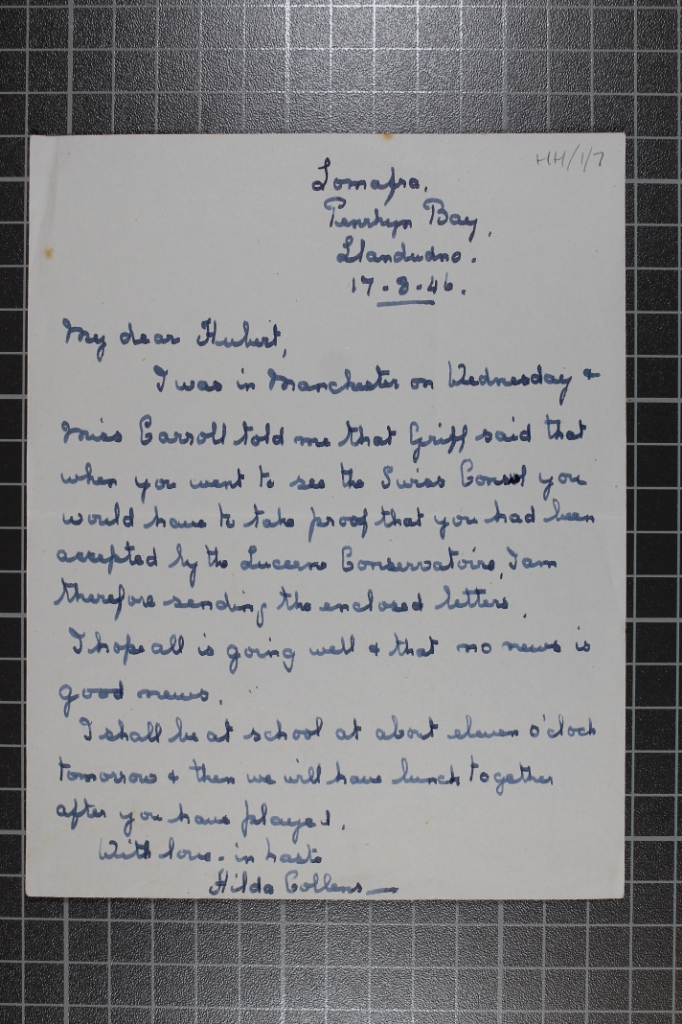 HH/1/7
Lomafra.
Penrhyn Bay,
Llandudno.
17-8-46.
My dear Hubert,
I was in Manchester on Wednesday &
Miss Carroll told me that Griff said that
when you went to see the Swiss Consul you
would have to take proof that you had been
accepted by the Lucerne Conservatoire, I am
therefore sending the enclosed letters.
I hope all is going well & that no news is
good news.
I shall be at school at about eleven o'clock
tomorrow & then we will have lunch together
after you have played.
With love - in haste
Hilda Collens